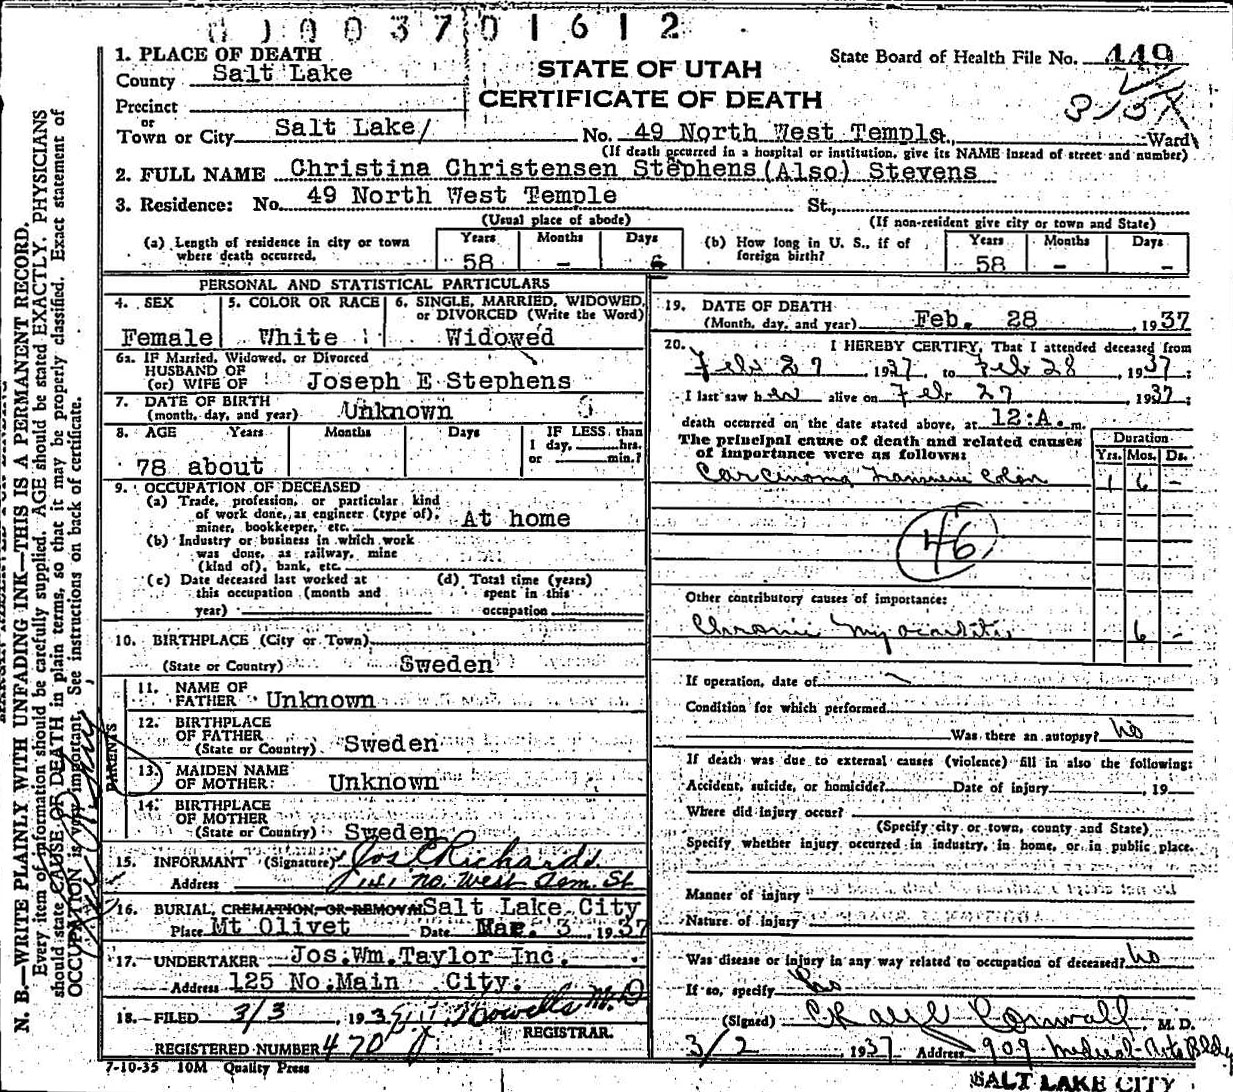 003701612
1. PLACE OF DEATH
County Salt Lake
STATE OF UTAH
CERTIFICATE OF DEATH
State Board of Health File No. 449
Precinct
or
Town or City Salt Lake/ No. 49 North West Temple, Ward
(If death occurred in a hospital or institution, give its NAME instead of street and number)
2. FULL NAME Christina Christensen Stephens (Also) Stevens
3. Residence: No. 49 North West Temple St.,
(Usual place of abode) (If non-resident give city or town and State)
(a) Length of residence in city or town where death occurred. Years 58 Months - Days
(b) How long in U. S., if of foreign birth? Years 58 Months - Days -
PERSONAL AND STATISTICAL PARTICULARS
4. SEX Female
5. COLOR OR RACE White
6. SINGLE, MARRIED, WIDOWED, or DIVORCED (Write the Word) Widowed
6a. IF Married, Widowed, or Divorced
HUSBAND OF
(or) WIFE OF Joseph E Stephens
7. DATE OF BIRTH
(month, day, and year) Unknown
8. AGE Years Months Days IF LESS than
1 day, hrs.
or min.?
78 about
9. OCCUPATION OF DECEASED
(a) Trade, profession, or particular kind
of work done, as engineer (type of),
miner, bookkeeper, etc. At home
(b) Industry or business in which work
was done, as railway, mine
(kind of), bank, etc.
(c) Date deceased last worked at
this occupation (month and
year)
(d) Total time (years)
spent in this
occupation
10. BIRTHPLACE (City or Town)
(State or Country) Sweden
PARENTS
11. NAME OF
FATHER Unknown
12. BIRTHPLACE
OF FATHER
(State or Country) Sweden
13. MAIDEN NAME
OF MOTHER Unknown
14. BIRTHPLACE
OF MOTHER
(State or Country) Sweden
15. INFORMANT (Signature) Jos E Richards
Address 141 No. West Tem. St
16. BURIAL, CREMATION, OR REMOVAL Salt Lake City
Place Mt Olivet Date Mar. 3, 1937
17. UNDERTAKER Jos. Wm. Taylor Inc.
Address 125 No. Main City.
18. FILED 3/3, 193 Howells M.D
REGISTRAR.
REGISTERED NUMBER 470
7-10-35 10M Quality Press
19. DATE OF DEATH
(Month, day, and year) Feb. 28, 1937
20. I HEREBY CERTIFY, That I attended deceased from
Feb 27, 1937, to Feb 28, 1937;
I last saw her alive on Feb 27 1937;
death occurred on the date stated above, at 12:A. m.
The principal cause of death and related causes
of importance were as follows:
Duration
Yrs. Mos. Ds.
Carcinoma Transverse Colon 1 6 -
46
Other contributory causes of importance:
Chronic Myocarditis 6 -
If operation, date of
Condition for which performed
Was there an autopsy? No
If death was due to external causes (violence) fill in also the following:
Accident, suicide, or homicide? Date of injury, 19
Where did injury occur?
(Specify city or town, county and State)
Specify whether injury occurred in industry, in home, or in public place.
Manner of injury
Nature of injury
Was disease or injury in any way related to occupation of deceased? No
If so, specify No
(Signed) Cornwall, M. D.
3/2 1937 Address 909 Medical-Arts Bldg
SALT LAKE CITY
N. B.—WRITE PLAINLY WITH UNFADING INK—THIS IS A PERMANENT RECORD.
Every item of information should be carefully supplied. AGE should be stated EXACTLY. PHYSICIANS
should state CAUSE OF DEATH in plain terms, so that it may be properly classified. Exact statement of
OCCUPATION is very important. See instructions on back of certificate.